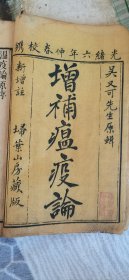 光緒六年仲春校
吳又可先生原輯
增補瘟疫論
新增註
埽葉山房藏版
疫論原序